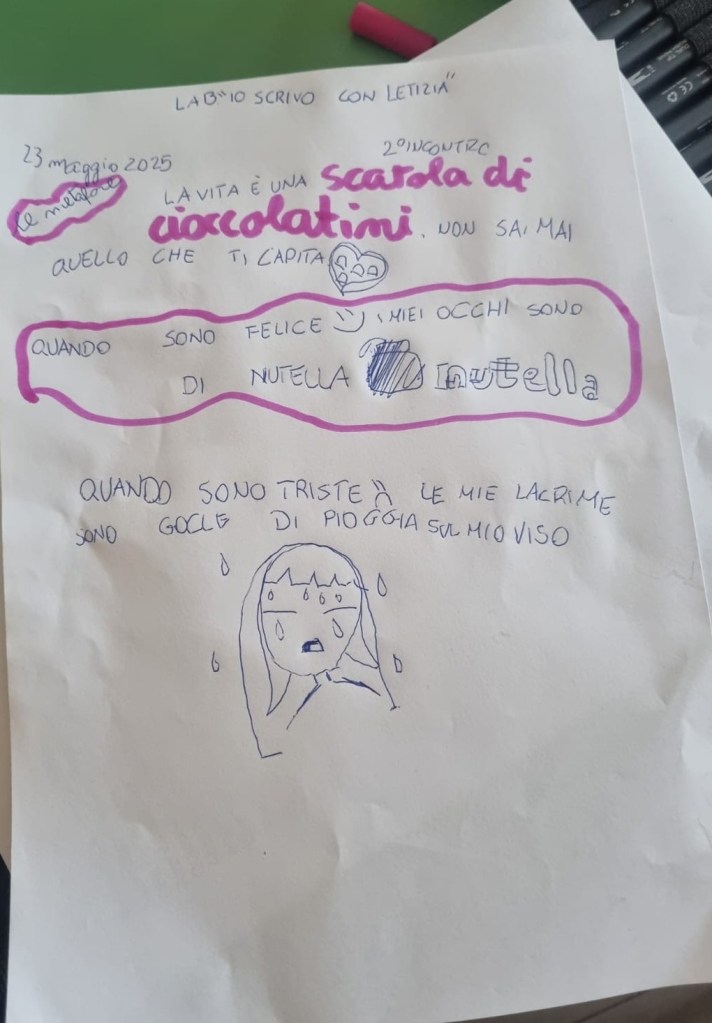 LAB "IO SCRIVO CON LETIZIA"
23 maggio 2025 2° INCONTRO
le metafore
LA VITA È UNA scatola di
cioccolatini. NON SAI MAI
QUELLO CHE TI CAPITA
QUANDO SONO FELICE :) I MIEI OCCHI SONO
DI NUTELLA nutella
QUANDO SONO TRISTE :( LE MIE LACRIME
SONO GOCCE DI PIOGGIA SUL MIO VISO